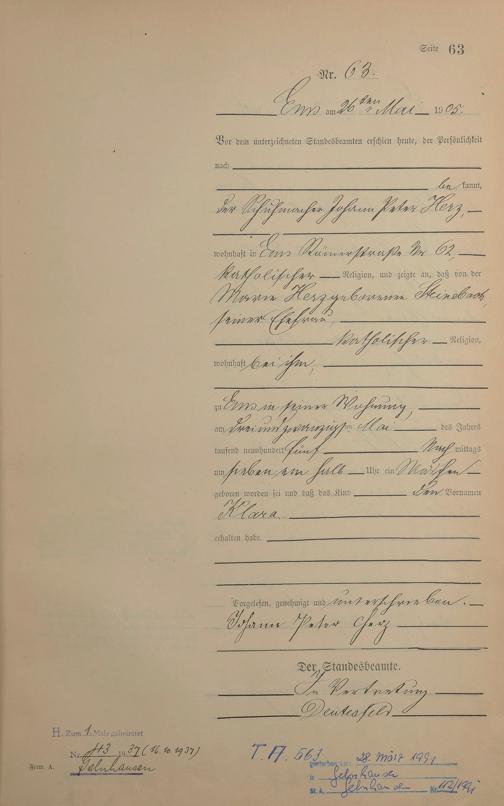 Seite 63
Nr. 63.
Ems am 26ten Mai 1905.
Vor dem unterzeichneten Standesbeamten erschien heute, der Persönlichkeit
nach
be kannt,
der Schuhmacher Johann Peter Herz
wohnhaft in Ems Römerstraße Nr 62,
katholischer Religion, und zeigte an, daß von der
Marie Herz geborenen Steinbach,
seiner Ehefrau,
katholischer Religion,
wohnhaft bei ihm,
zu Ems in seiner Wohnung,
am dreiundzwanzigsten Mai des Jahres
tausend neunhundert fünf Nach mittags
um sieben ein halb Uhr ein Mädchen
geboren worden sei und daß das Kind den Vornamen
Klara
erhalten habe.
Vorgelesen, genehmigt und unterschrieben.
Johann Peter Herz
Der Standesbeamte.
In Vertretung
H. Zum 1. Mal geheiratet
Nr. 1937 (16.10.1937)
Gelnhausen
Form. A.
T.A. 563
gestorben am 28. März 1991
in Gelnhausen
St. A. Gelnhausen Nr. 112/1991